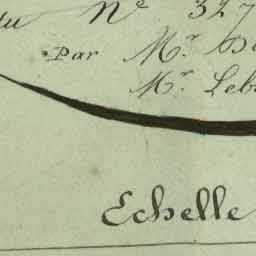 du N° 327
Par Mr.
Mr. Leb
Echelle